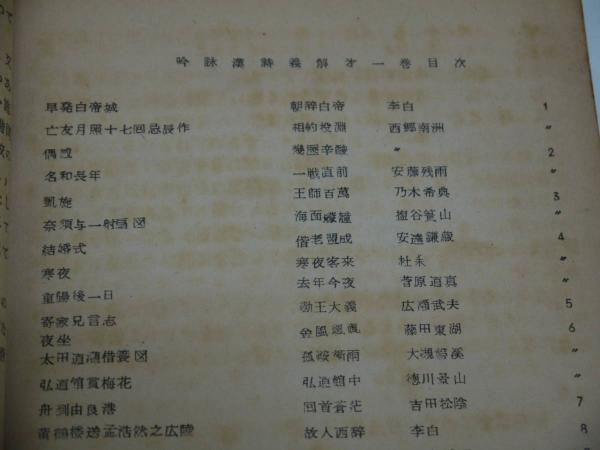 吟詠漢詩義解才一巻目次
早発白帝城 朝辞白帝 李白 1
亡友月照十七回忌辰作 相約投淵 西郷南洲 〃
偶感 幾歴辛酸 〃 2
名和長年 一戦直前 安藤残雨 〃
凱旋 王師百萬 乃木希典 3
奈須与一射扇図 海面艨艟 塩谷簣山 〃
結婚式 偕老盟成 安達謙蔵 4
寒夜 寒夜客来 杜耒 〃
重陽後一日 去年今夜 菅原道真 〃
寄家兄言志 勤王大義 広瀬武夫 5
夜坐 金風颯颯 藤田東湖 6
太田道灌借蓑図 孤鞍衝雨 大槻磐溪 〃
弘道館賞梅花 弘道館中 徳川景山 〃
舟到由良港 回首蒼茫 吉田松陰 7
黄鶴楼送孟浩然之広陵 故人西辞 李白 8